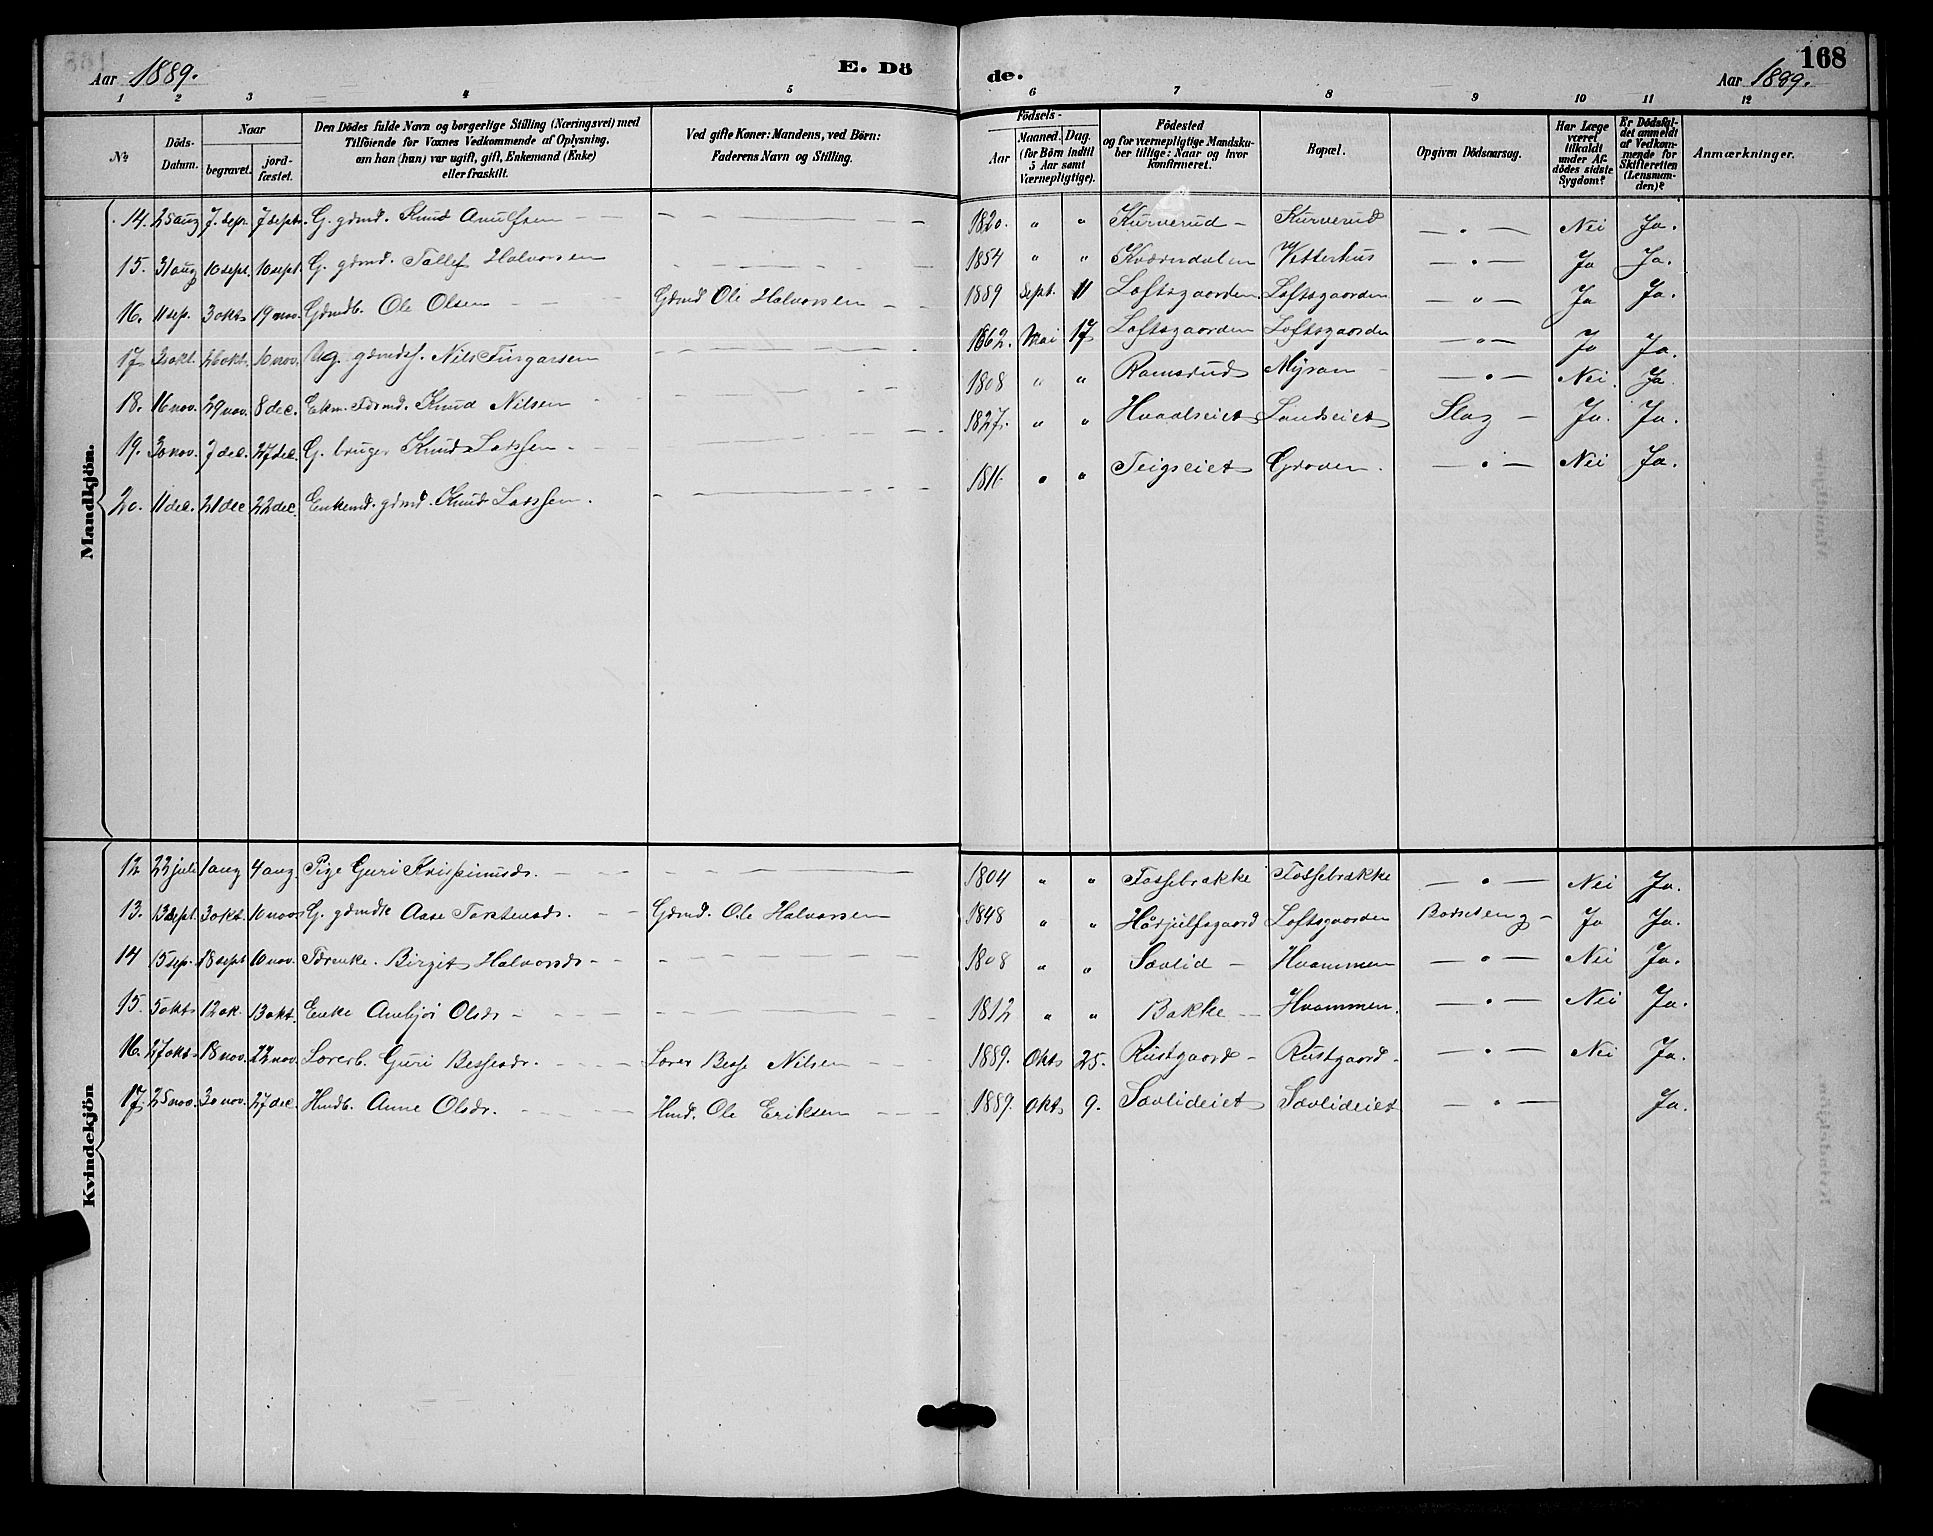 Aar 1889.
E. Dö
de.
Aar 1889.
168
1 2 3 4 5 6 7 8 9 10 11 12
No.
Döds-Datum.
Naar
begravet.
jord-fæstet.
Den Dödes fulde Navn og borgerlige Stilling (Næringsvei) med
Tilföiende for Voxnes Vedkommende af Oplysning,
om han (hun) var ugift, gift, Enkemand (Enke)
eller fraskilt.
Ved gifte Koner: Mandens, ved Börn:
Faderens Navn og Stilling.
Födsels-
Aar
Maaned. Dag.
(for Börn indtil
5 Aar samt
Værnepligtige).
Födested
og for værnepligtige Mandska-
ber tillige: Naar og hvor
konfirmeret.
Bopæl.
Opgiven Dödsaarsag.
Har Læge
været
tilkaldt
under Af-
dödes sidste
Sygdom?
Er Dödsfal-
det anmeldt
af Vedkom-
mende for
Skifteretten
(Lensman-
den)?
Anmærkninger.
Mandkjön.
14. 25 aug 7. sep. 7 sept. G. gdmd. Knud Anulfsen — 1820. " " Kurverud — Kurverud — " — Nei Ja.
15. 31 aug 10 sept. 10 sept. G. gdmd. Tollef Halvorsen — 1854 " " Kværndalen Vetterhus — " — Ja Ja.
16. 11 sep. 3 okt 19 nov. Gdmdb. Ole Olsen — Gdmd Ole Halvorsen — 1889 Sept. 11 Loftsgaarden. Loftsgaarden — " — Ja Ja.
17 20 okt. 26 okt. 10 nov. Ug. gdmds. Nils Turgarsen — 1862. Mai 17 Loftsgaarden Loftsgaarden — " — Ja Ja.
18. 16 nov. 29 nov. 8 dec. Ekm. Fdrmd. Knud Nilsen — 1808 " " Ramsrud Myran — — " — Nei. Ja.
19. 30 nov. 7 dec. 27 dec. G. bruger Knud Larssen — 1827. " " Hvaalseiet Sandseiet Slag — Ja. Ja.
20. 11 dec. 21 dec 22 dec. Enkemd. gdmd. Knud Larssen. — 1816 " " Teigseiet Groven. — " — Nei Ja.
Kvindekjön
12 22 juli 1 aug 4 aug. Pige Guri Kristinusdr. — 1804 " " Fossebrække Fossebrække — " — Nei Ja.
13. 13 sept. 3 okt. 10 nov G. gdmdk Aase Torstensdr. — Gdmd. Ole Halvorsen 1848 " " Hårjulfsgaard Loftsgaarden Barseleng — Ja Ja.
14 15 sep. 18 sept 10 nov. Fdrenke. Birgit Halvorsdr — 1808 " " Sævlid — Hvammen — " — Nei Ja.
15. 5 okt 12 ok. 13 okt. Enke Ambjör Olsdr — 1812 " " Bakke — Hvammen. — " — Nei Ja.
16. 27 okt 18 nov. 22 nov. Lærerb. Guri Bessesdr. — Lærer Besse Nilsen — 1889. Okt 25. Rustgaard — Rustgaard — — " — Nei Ja.
17. 25 nov. 30 nov. 27 dec. Hmdb. Anne Olsdr. — Hmd. Ole Eriksen — 1889. Okt 9. Sævlideiet Sævlideiet — " — Ja.